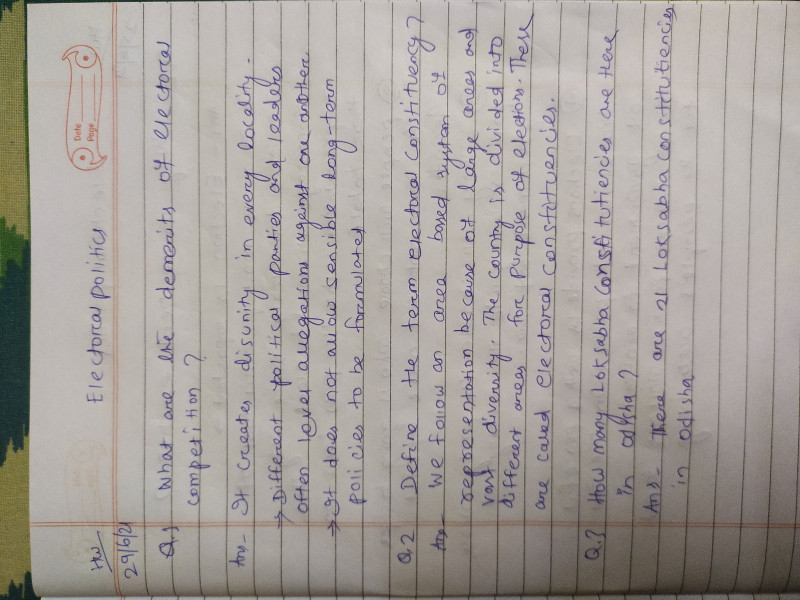 Date
Page
HW
29/6/21
Electoral politics
Q.1 What are the demerits of electoral
competition ?
Ans- It creates disunity in every locality.
→ Different political parties and leaders
often level allegations against one another
→ It does not allow sensible long-term
policies to be formulated
Q.2 Define the term electoral constituency?
Ans- We follow an area based system of
representation because of large areas and
vast diversity. The country is divided into
different areas for purpose of elections. These
are called electoral constituencies.
Q.3 How many Loksabha constitutiencies are there
in odisha ?
Ans- There are 21 Loksabha constitutiencies
in odisha